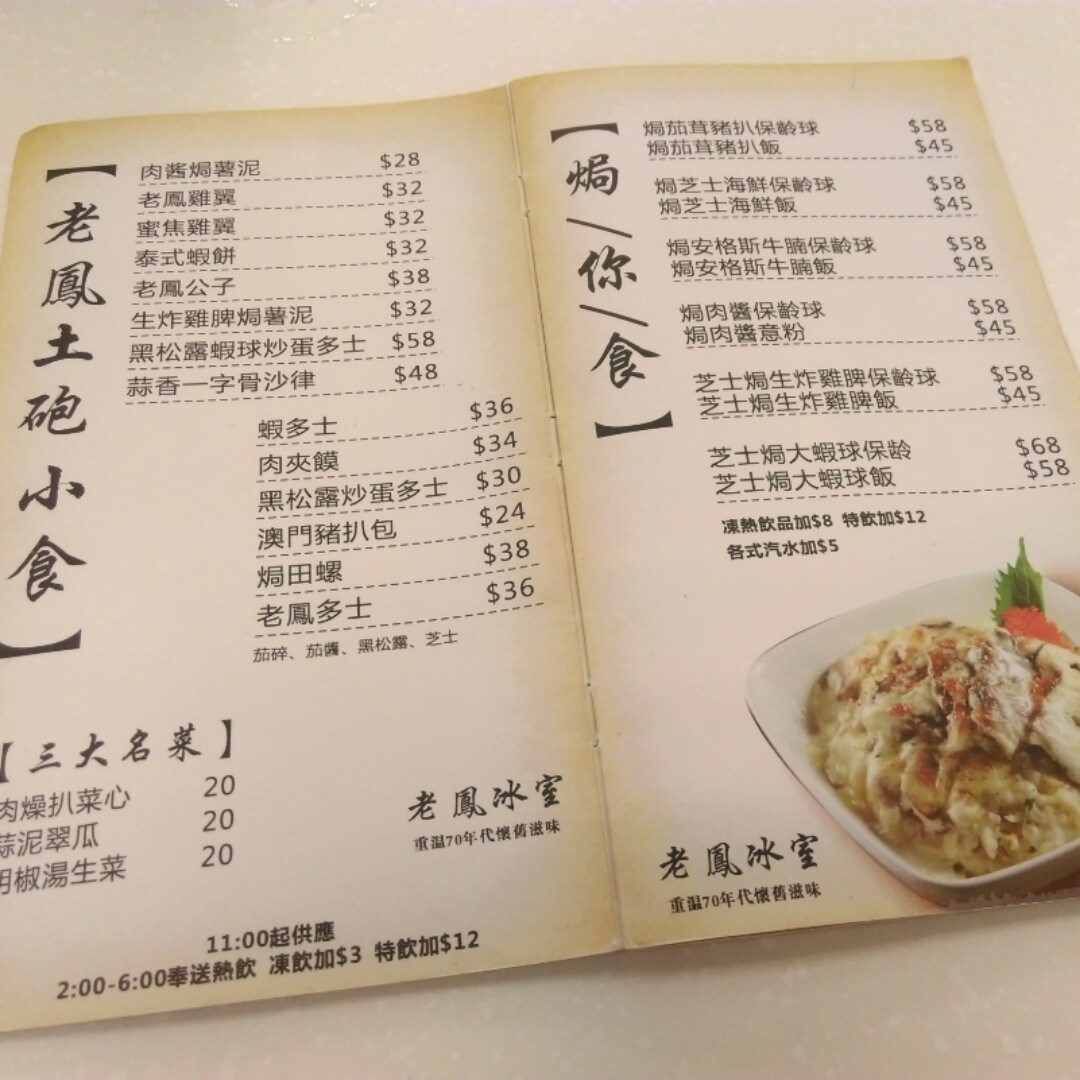 【老鳳土砲小食】
肉酱焗薯泥 $28
老鳳雞翼 $32
蜜焦雞翼 $32
泰式蝦餅 $32
老鳳公子 $38
生炸雞脾焗薯泥 $32
黑松露蝦球炒蛋多士 $58
蒜香一字骨沙律 $48
蝦多士 $36
肉夾饃 $34
黑松露炒蛋多士 $30
澳門豬扒包 $24
焗田螺 $38
老鳳多士 $36
茄碎、茄醬、黑松露、芝士
【三大名菜】
肉燥扒菜心 20
蒜泥翠瓜 20
胡椒湯生菜 20
老鳳冰室
重温70年代懷舊滋味
11:00起供應
2:00-6:00奉送熱飲 凍飲加$3 特飲加$12
【焗/你/食】
焗茄茸豬扒保齡球 $58
焗茄茸豬扒飯 $45
焗芝士海鮮保齡球 $58
焗芝士海鮮飯 $45
焗安格斯牛腩保齡球 $58
焗安格斯牛腩飯 $45
焗肉醬保齡球 $58
焗肉醬意粉 $45
芝士焗生炸雞脾保齡球 $58
芝士焗生炸雞脾飯 $45
芝士焗大蝦球保龄 $68
芝士焗大蝦球飯 $58
凍熱飲品加$8 特飲加$12
各式汽水加$5
老鳳冰室
重温70年代懷舊滋味